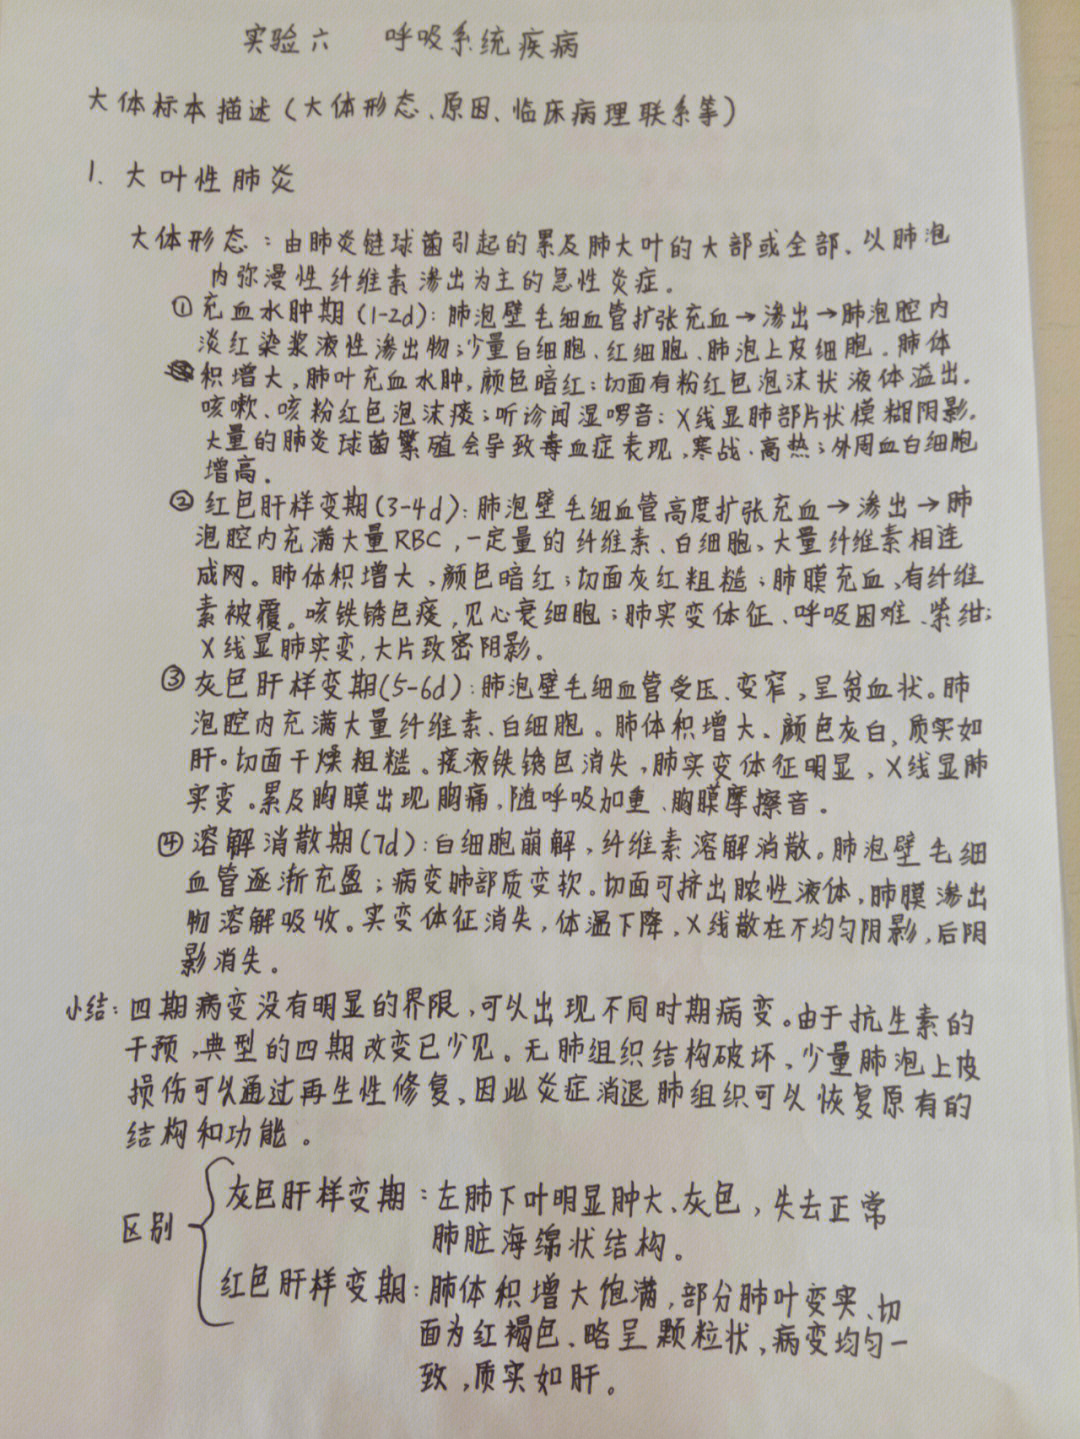 实验六 呼吸系统疾病
大体标本描述(大体形态、原因、临床病理联系等)
1. 大叶性肺炎
大体形态:由肺炎链球菌引起的累及肺大叶的大部或全部、以肺泡
内弥漫性纤维素渗出为主的急性炎症。
①充血水肿期(1-2d):肺泡壁毛细血管扩张充血→渗出→肺泡腔内
淡红染浆液性渗出物;少量白细胞、红细胞、肺泡上皮细胞。肺体
积增大,肺叶充血水肿,颜色暗红;切面有粉红色泡沫状液体溢出。
咳嗽、咳粉红色泡沫痰;听诊闻湿啰音;X线显肺部片状模糊阴影。
大量的肺炎球菌繁殖会导致毒血症表现、寒战、高热;外周血白细胞
增高。
②红色肝样变期(3-4d):肺泡壁毛细血管高度扩张充血→渗出→肺
泡腔内充满大量RBC,一定量的纤维素、白细胞、大量纤维素相连
成网。肺体积增大、颜色暗红;切面灰红粗糙;肺膜充血,有纤维
素被覆。咳铁锈色痰,见心衰细胞;肺实变体征、呼吸困难、紫绀;
X线显肺实变,大片致密阴影。
③灰色肝样变期(5-6d):肺泡壁毛细血管受压、变窄,呈贫血状。肺
泡腔内充满大量纤维素、白细胞。肺体积增大、颜色灰白,质实如
肝。切面干燥粗糙。痰液铁锈色消失,肺实变体征明显,X线显肺
实变。累及胸膜出现胸痛,随呼吸加重、胸膜摩擦音。
④溶解消散期(7d):白细胞崩解,纤维素溶解消散。肺泡壁毛细
血管逐渐充盈;病变肺部质变软。切面可挤出脓性液体,肺膜渗出
物溶解吸收。实变体征消失,体温下降,X线散在不均匀阴影,后阴
影消失。
小结:四期病变没有明显的界限,可以出现不同时期病变。由于抗生素的
干预,典型的四期改变已少见。无肺组织结构破坏、少量肺泡上皮
损伤可以通过再生性修复、因此炎症消退肺组织可以恢复原有的
结构和功能。
区别
灰色肝样变期:左肺下叶明显肿大、灰色,失去正常
肺脏海绵状结构。
红色肝样变期:肺体积增大饱满,部分肺叶变实、切
面为红褐色、略呈颗粒状,病变均匀一
致,质实如肝。